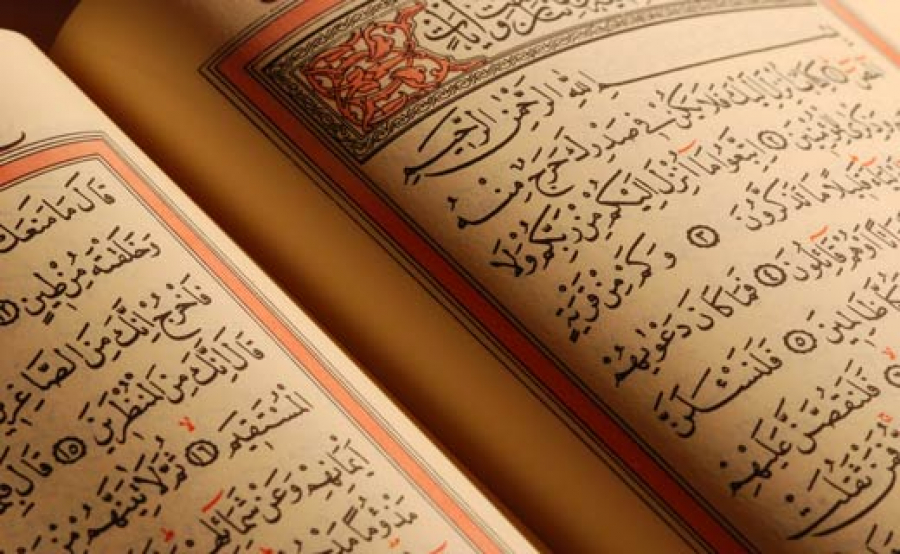 اللهِ الرَّحْمٰنِ الرَّحِيمِ
كِتَابٌ اُنْزِلَ اِلَيْكَ فَلَا يَكُنْ فِى صَدْرِكَ حَرَجٌ مِنْهُ
وَذِكْرٰى لِلْمُؤْمِنِينَ ٢ اِتَّبِعُوا مَا اُنْزِلَ اِلَيْكُمْ مِنْ رَبِّكُمْ وَلَا
قَلِيلًا مَا تَذَكَّرُونَ ٣ وَكَمْ مِنْ قَرْيَةٍ
اَوْ هُمْ قَائِلُونَ ٤ فَمَا كَانَ دَعْوٰيهُمْ
ظَالِمِينَ ٥ فَلَنَسْـَٔلَنَّ
فَلَنَقُصَّنَّ عَلَيْهِمْ
فَمَنْ ثَقُلَتْ
قَالَ مَا مَنَعَكَ
وَخَلَقْتَهُ مِنْ طِينٍ ١٢
فَاخْرُجْ اِنَّكَ مِنَ الصَّاغِرِينَ
قَالَ اِنَّكَ مِنَ الْمُنْظَرِينَ ١٥ قَالَ
الْمُسْتَقِيمَ ١٦ ثُمَّ لَاٰتِيَنَّهُمْ مِنْ
اَيْمَانِهِمْ وَعَنْ شَمَائِلِهِمْ
مَذْؤُمًا